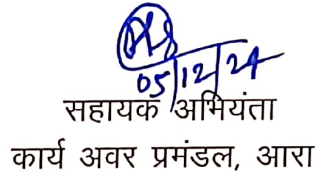 05/12/24
सहायक अभियंता
कार्य अवर प्रमंडल, आरा